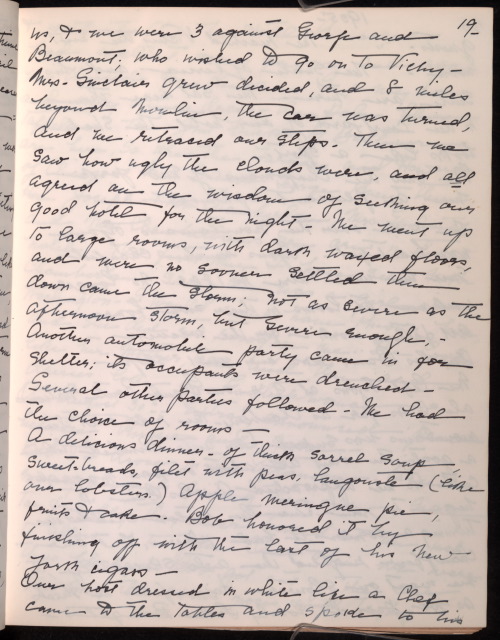 19-
us, & we were 3 against George and
Beaumont, who wished to go on to Vichy -
Mrs. Sinclair grew decided, and 8 miles
beyond Moulin, the car was turned,
and we retraced our steps. Then we
saw how ugly the clouds were, and all
agreed on the wisdom of seeking our
good hotel for the night - We went up
to large rooms, with dark waxed floors,
and were no sooner settled than
down came the storm; not as severe as the
afternoon storm, but severe enough, -
Another automobile party came in for
shelter; its occupants were drenched -
Several other parties followed - We had
the choice of rooms -
A delicious dinner - of thick sorrel soup,
sweet-breads, filet with peas, langouste (like
our lobsters.) apple meringue pie,
fruits & cake. Bob honored it by
finishing off with the last of his New
York cigars -
Our host dressed in white like a Chef
came to the tables and spoke to his